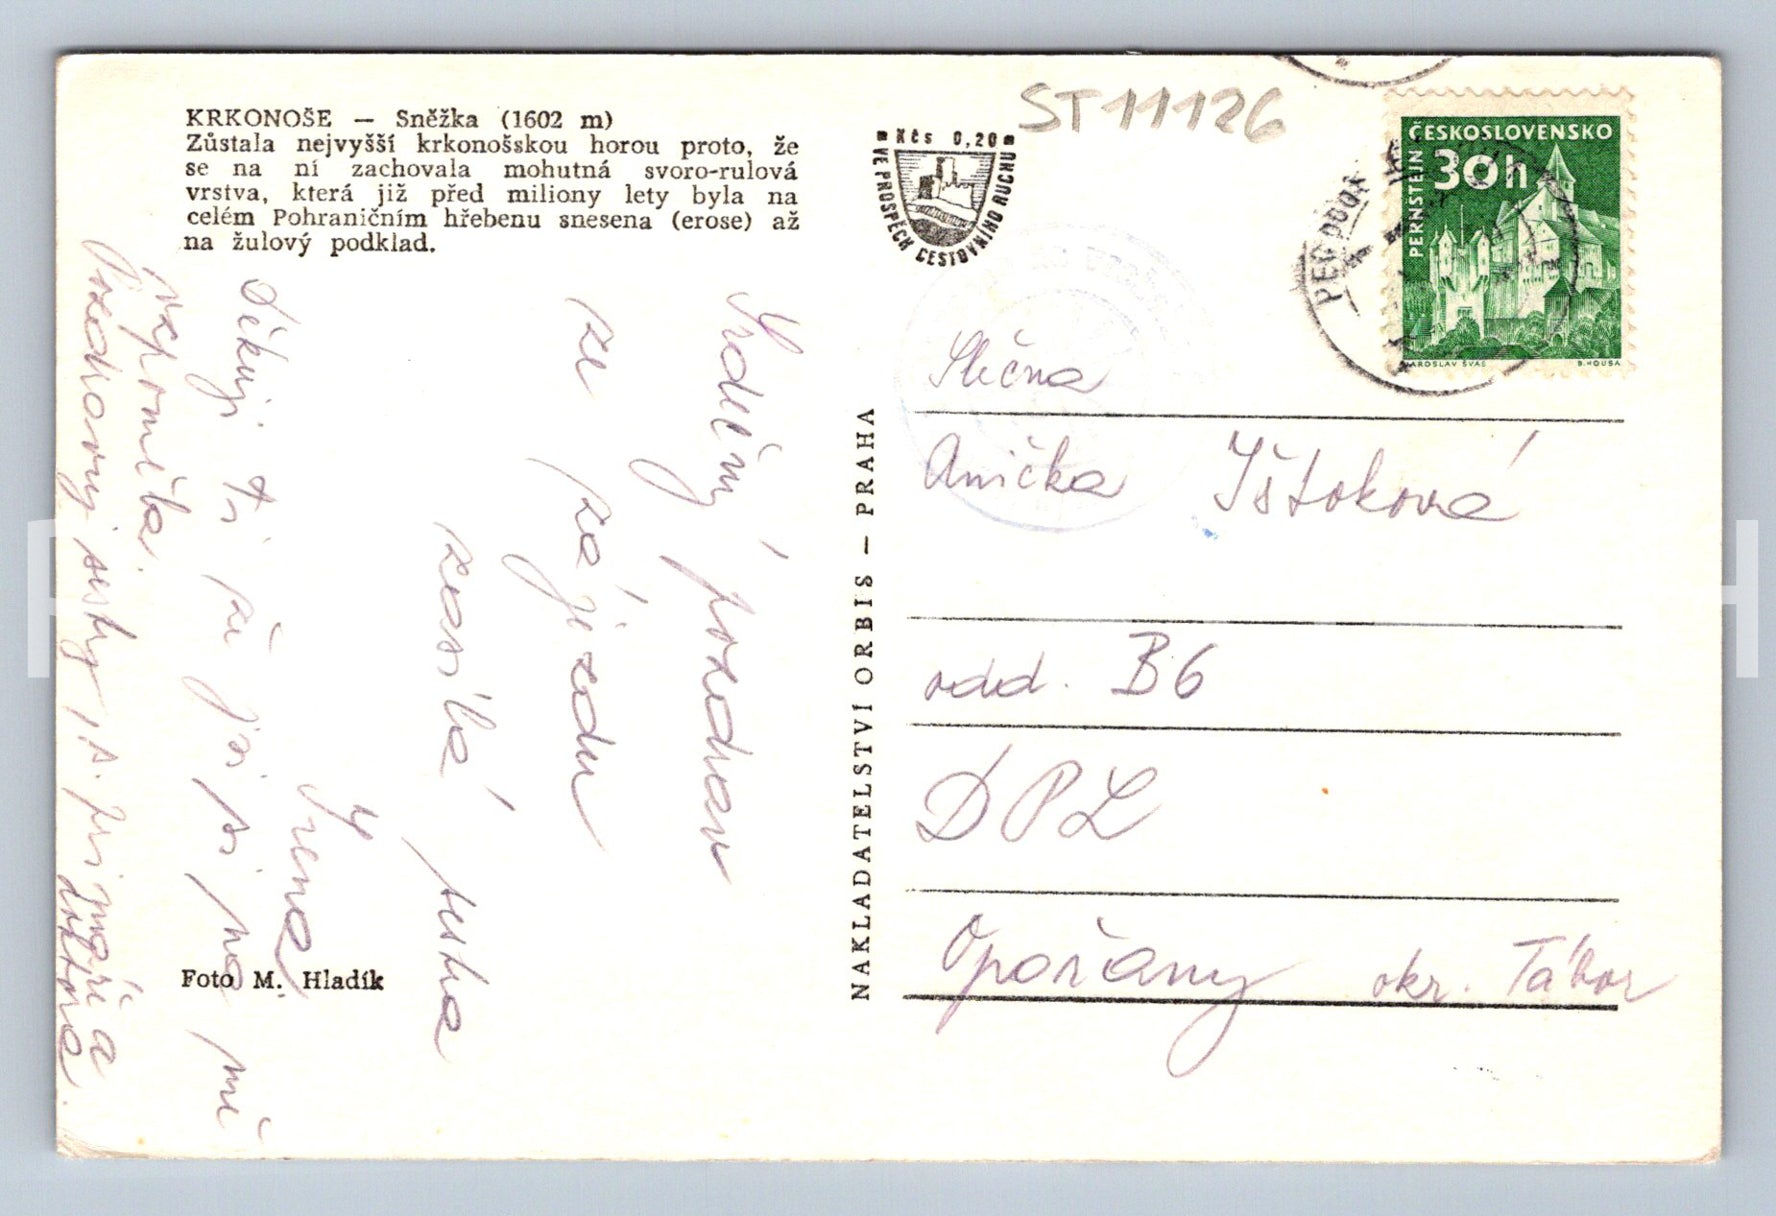 KRKONOŠE — Sněžka (1602 m)
Zůstala nejvyšší krkonošskou horou proto, že
se na ní zachovala mohutná svoro-rulová
vrstva, která již před miliony lety byla na
celém Pohraničním hřebenu snesena (erose) až
na žulový podklad.
Srdečný pozdrav
ze zájezdu
zasílá sestra
Irena
Děkuji ti že jsi si na mě
vzpomněla.
Pozdravuj sestry, p. primáře a
doktora.
Foto M. Hladík
NAKLADATELSTVÍ ORBIS — PRAHA
Kčs 0,20
VE PROSPĚCH CESTOVNÍHO RUCHU
ST11126
ČESKOSLOVENSKO
30h
PERNŠTEJN
JAROSLAV ŠVÁB
B. HOUSA
PEC POD
Slečna
Anička Ištoková
odd. B6
DPL
Opořany okr. Tábor